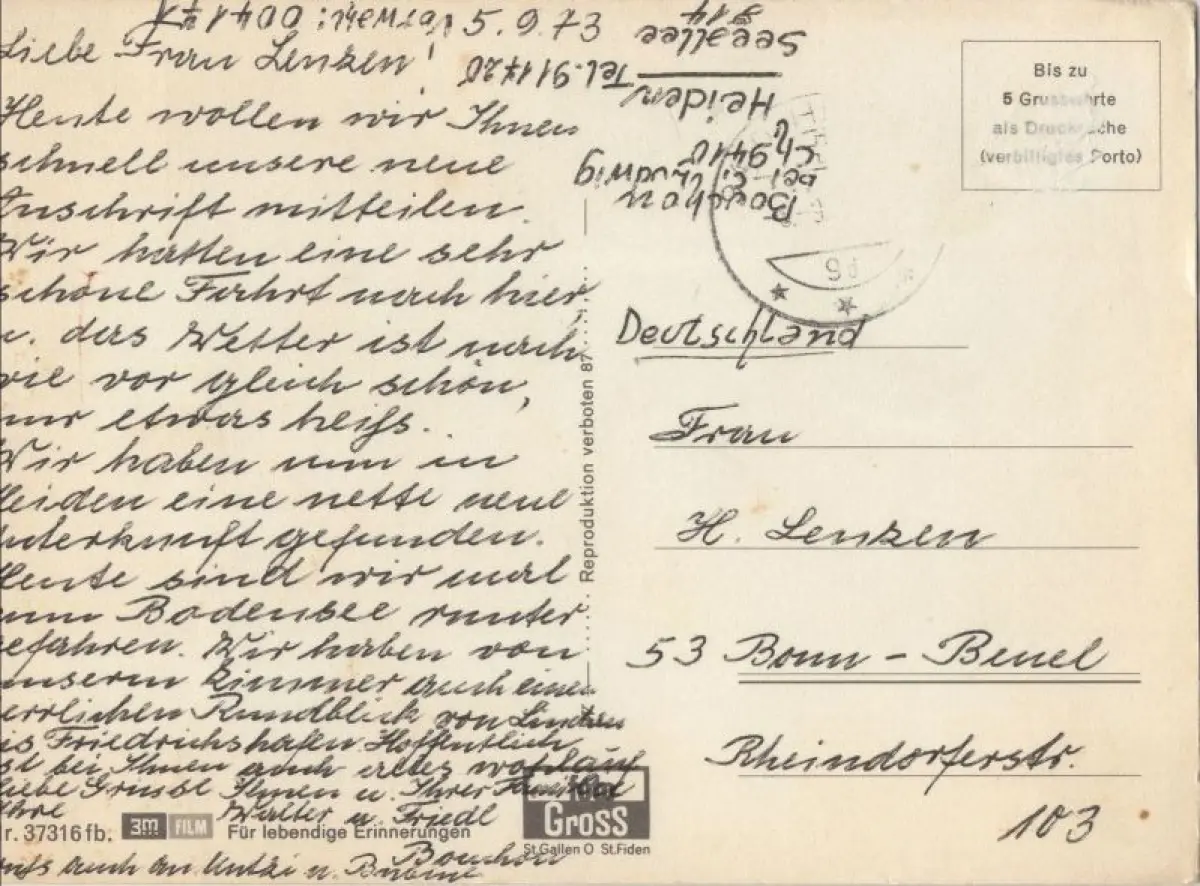 5.9.73
Liebe Frau Lenzen!
Heute wollen wir Ihnen
schnell unsere neue
Anschrift mitteilen.
Wir hatten eine sehr
schöne Fahrt nach hier,
u. das Wetter ist nach
wie vor gleich schön,
nur etwas heiß.
Wir haben nun in
Heiden eine nette neue
Unterkunft gefunden.
Heute sind wir mal
zum Bodensee runter
gefahren. Wir haben von
unserm Zimmer auch einen
herrlichen Rundblick von Lindau
bis Friedrichshafen. Hoffentlich
ist bei Ihnen auch alles wohlauf
liebe Grüsse Ihnen u. Ihrer Familie
Ihre Walter u. Friedl
auch an u.
Nr. 37316 fb. 3M FILM Für lebendige Erinnerungen
Foto Gross
St.Gallen O St.Fiden
Reproduktion verboten 87
bei E. Ludwig
CH 9410
Heiden
Tel. 911720
Seeallee
814
Vorwahl: 004171
Bis zu
5 Grussworte
als Drucksache
(verbilligtes Porto)
9d
Deutschland
Frau
H. Lenzen
53 Bonn - Beuel
Rheindorferstr.
103